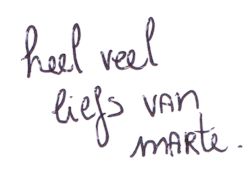 heel veel
liefs van
marte.